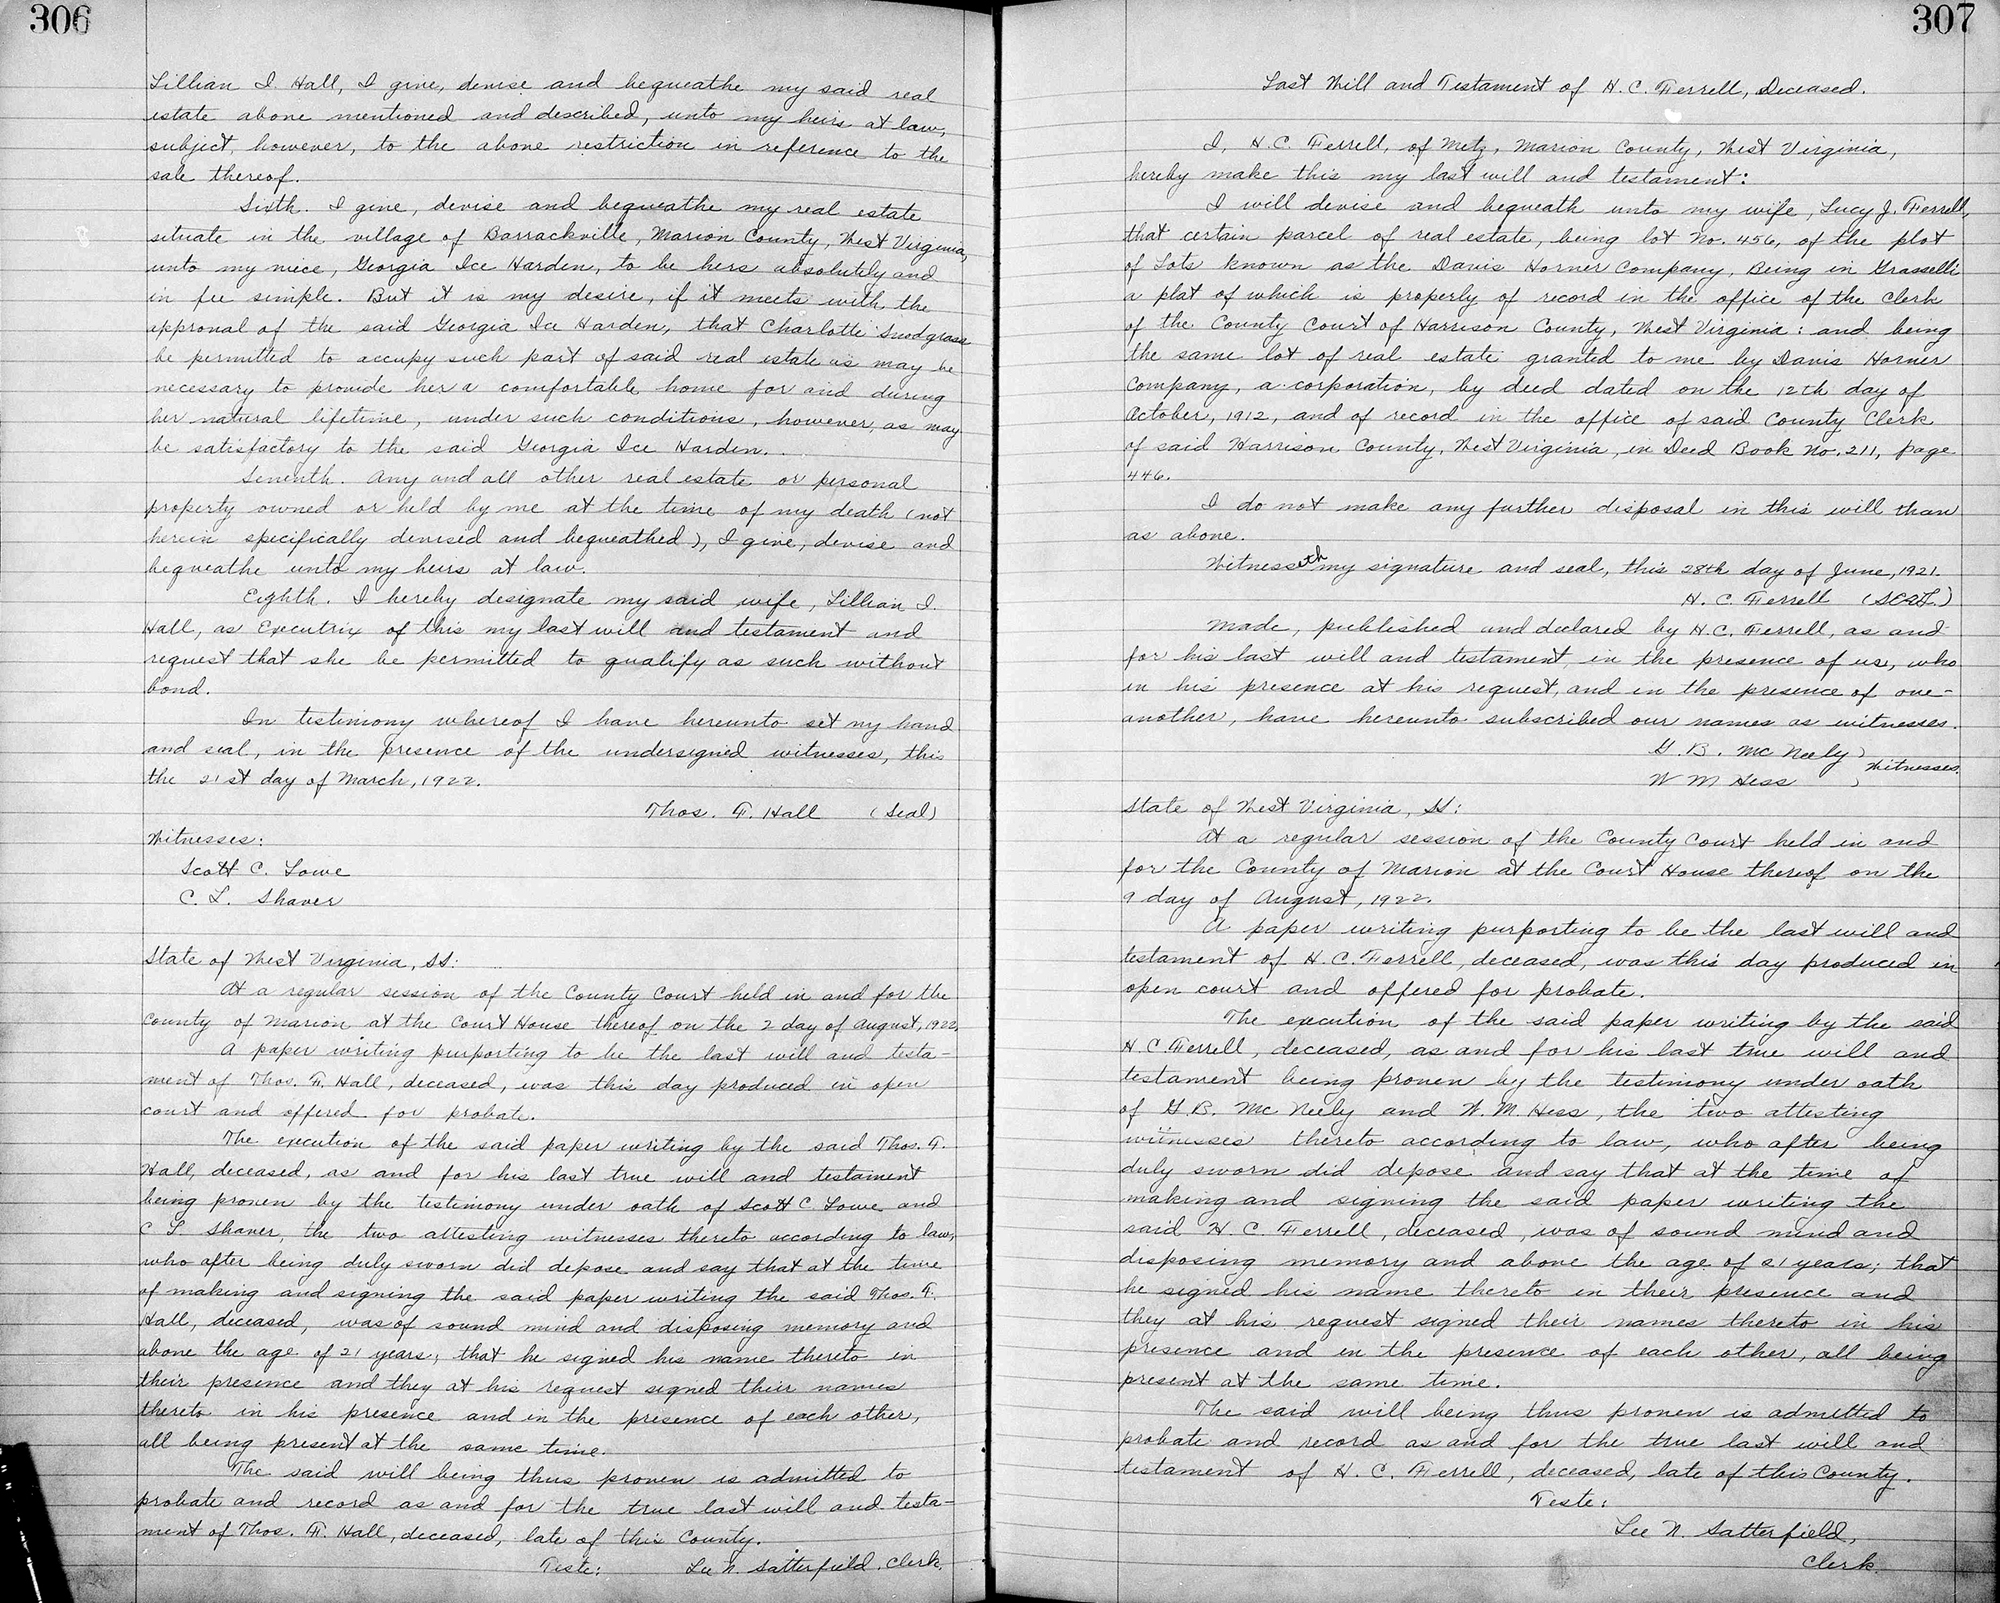 306
Lillian I. Hall, I give, devise and bequeathe my said real
estate above mentioned and described, unto my heirs at law,
subject, however, to the above restriction in reference to the
sale thereof.
Sixth. I give, devise and bequeathe my real estate
situate in the village of Barrackville, Marion County, West Virginia,
unto my niece, Georgia Ice Harden, to be hers absolutely and
in fee simple. But it is my desire, if it meets with the
approval of the said Georgia Ice Harden, that Charlotte Snodgrass
be permitted to accupy such part of said real estate as may be
necessary to provide her a comfortable home for and during
her natural lifetime, under such conditions, however, as may
be satisfactory to the said Georgia Ice Harden.
Seventh. Any and all other real estate or personal
property owned or held by me at the time of my death (not
herein specifically devised and bequeathed), I give, devise and
bequeathe unto my heirs at law.
Eighth. I hereby designate my said wife, Lillian I.
Hall, as Executrix of this my last will and testament and
request that she be permitted to qualify as such without
bond.
In testimony whereof I have hereunto set my hand
and seal, in the presence of the undersigned witnesses, this
the 21st day of March, 1922.
Thos. F. Hall (Seal)
Witnesses:
Scott C. Lowe
C. L. Shaver
State of West Virginia, SS:
At a regular session of the County Court held in and for the
County of Marion at the Court House thereof on the 2 day of August, 1922,
A paper writing purporting to be the last will and testa-
ment of Thos. F. Hall, deceased, was this day produced in open
court and offered for probate.
The execution of the said paper writing by the said Thos. F.
Hall, deceased, as and for his last true will and testament
being proven by the testimony under oath of Scott C. Lowe and
C. L. Shaver, the two attesting witnesses thereto according to law,
who after being duly sworn did depose and say that at the time
of making and signing the said paper writing the said Thos. F.
Hall, deceased, was of sound mind and disposing memory and
above the age of 21 years; that he signed his name thereto in
their presence and they at his request signed their names
thereto in his presence and in the presence of each other,
all being present at the same time.
The said will being thus proven is admitted to
probate and record as and for the true last will and testa-
ment of Thos. F. Hall, deceased, late of this County.
Teste: Lee N. Satterfield, Clerk.
307
Last Will and Testament of H. C. Ferrell, Deceased.
I, H. C. Ferrell, of Metz, Marion County, West Virginia,
hereby make this my last will and testament:
I will devise and bequeath unto my wife, Lucy J. Ferrell,
that certain parcel of real estate, being lot No. 456, of the plot
of Lots known as the Davis Horner Company, Being in Grasselli
a plat of which is properly of record in the office of the Clerk
of the County Court of Harrison County, West Virginia: and being
the same lot of real estate granted to me by Davis Horner
Company, a corporation, by deed dated on the 12th day of
October, 1912, and of record in the office of said County Clerk
of said Harrison County, West Virginia, in Deed Book No. 211, page
446.
I do not make any further disposal in this will than
as above.
Witnesseth my signature and seal, this 28th day of June, 1921.
H. C. Ferrell (SEAL)
Made, published and declared by H. C. Ferrell, as and
for his last will and testament, in the presence of us, who
in his presence at his request, and in the presence of one-
another, have hereunto subscribed our names as witnesses.
G. B. McNeely )
W M Hess ) Witnesses.
State of West Virginia, SS:
At a regular session of the County Court held in and
for the County of Marion at the Court House thereof on the
9 day of August, 1922.
A paper writing purporting to be the last will and
testament of H. C. Ferrell, deceased, was this day produced in
open court and offered for probate.
The execution of the said paper writing by the said
H. C. Ferrell, deceased, as and for his last true will and
testament being proven by the testimony under oath
of G. B. McNeely and W. M. Hess, the two attesting
witnesses thereto according to law, who after being
duly sworn did depose and say that at the time of
making and signing the said paper writing the
said H. C. Ferrell, deceased, was of sound mind and
disposing memory and above the age of 21 years; that
he signed his name thereto in their presence and
they at his request signed their names thereto in his
presence and in the presence of each other, all being
present at the same time.
The said will being thus proven is admitted to
probate and record as and for the true last will and
testament of H. C. Ferrell, deceased, late of this County.
Teste:
Lee N. Satterfield,
Clerk.